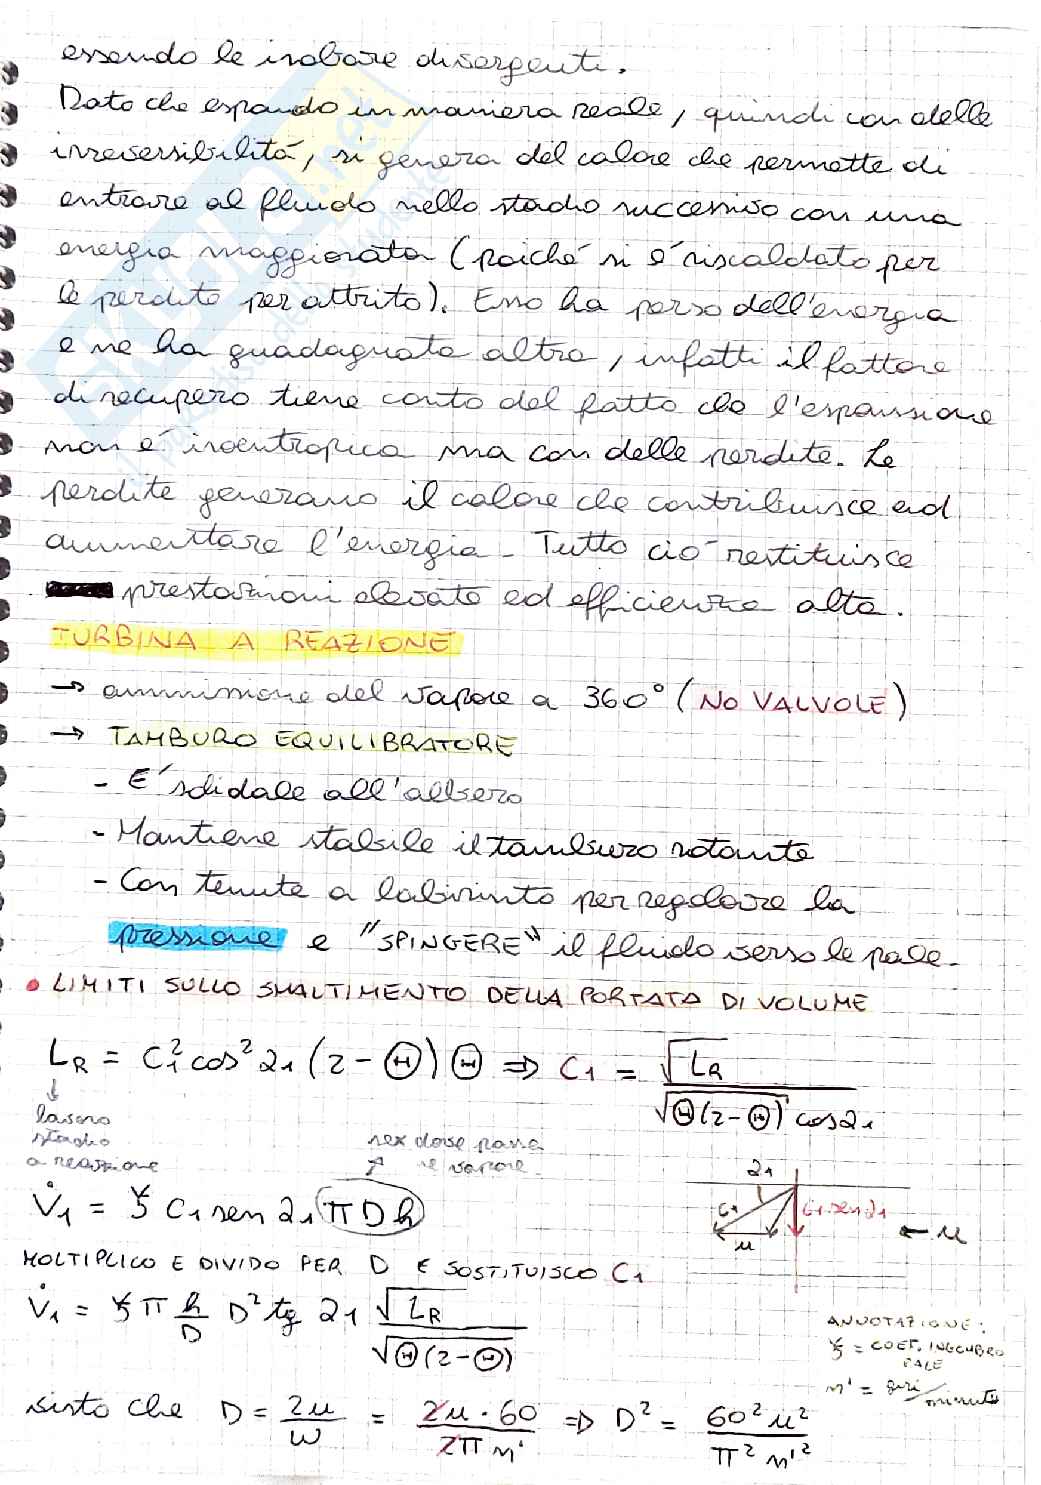 essendo le isobare divergenti.
Dato che espando in maniera reale, quindi con delle
irreversibilità, si genera del calore che permette di
entrare al fluido nello stadio successivo con una
energia maggiorata (poiché si è riscaldato per
le perdite per attrito). Esso ha perso dell'energia
e ne ha guadagnata altra, infatti il fattore
di recupero tiene conto del fatto che l'espansione
non è isoentropica ma con delle perdite. Le
perdite generano il calore che contribuisce ad
aumentare l'energia. Tutto ciò restituisce
prestazioni elevate ed efficienza alta.
TURBINA A REAZIONE
→ ammissione del vapore a 360° (NO VALVOLE)
→ TAMBURO EQUILIBRATORE
- E' solidale all'albero
- Mantiene stabile il tamburo rotante
- Con tenute a labirinto per regolare la
pressione e "SPINGERE" il fluido verso le pale.
• LIMITI SULLO SMALTIMENTO DELLA PORTATA DI VOLUME
L_R = C₁² cos² α₁ (2 - Θ) Θ ⇒ C₁ = √L_R / (√Θ(2-Θ) cos α₁)
↓
lavoro
stadio
a reazione
sex dove passa
il vapore
V̇₁ = ξ C₁ sen α₁ π D h
α₁
C₁
C₁ sen α₁
u
← u
MOLTIPLICO E DIVIDO PER D E SOSTITUISCO C₁
V̇₁ = ξ π h/D D² tg α₁ √L_R / √Θ(2-Θ)
ANNOTAZIONE:
ξ = COEF. INGOMBRO
PALE
n' = giri/minuto
visto che D = 2u/ω = 2u·60 / 2π n' ⇒ D² = 60² u² / π² n'²
skuola.net